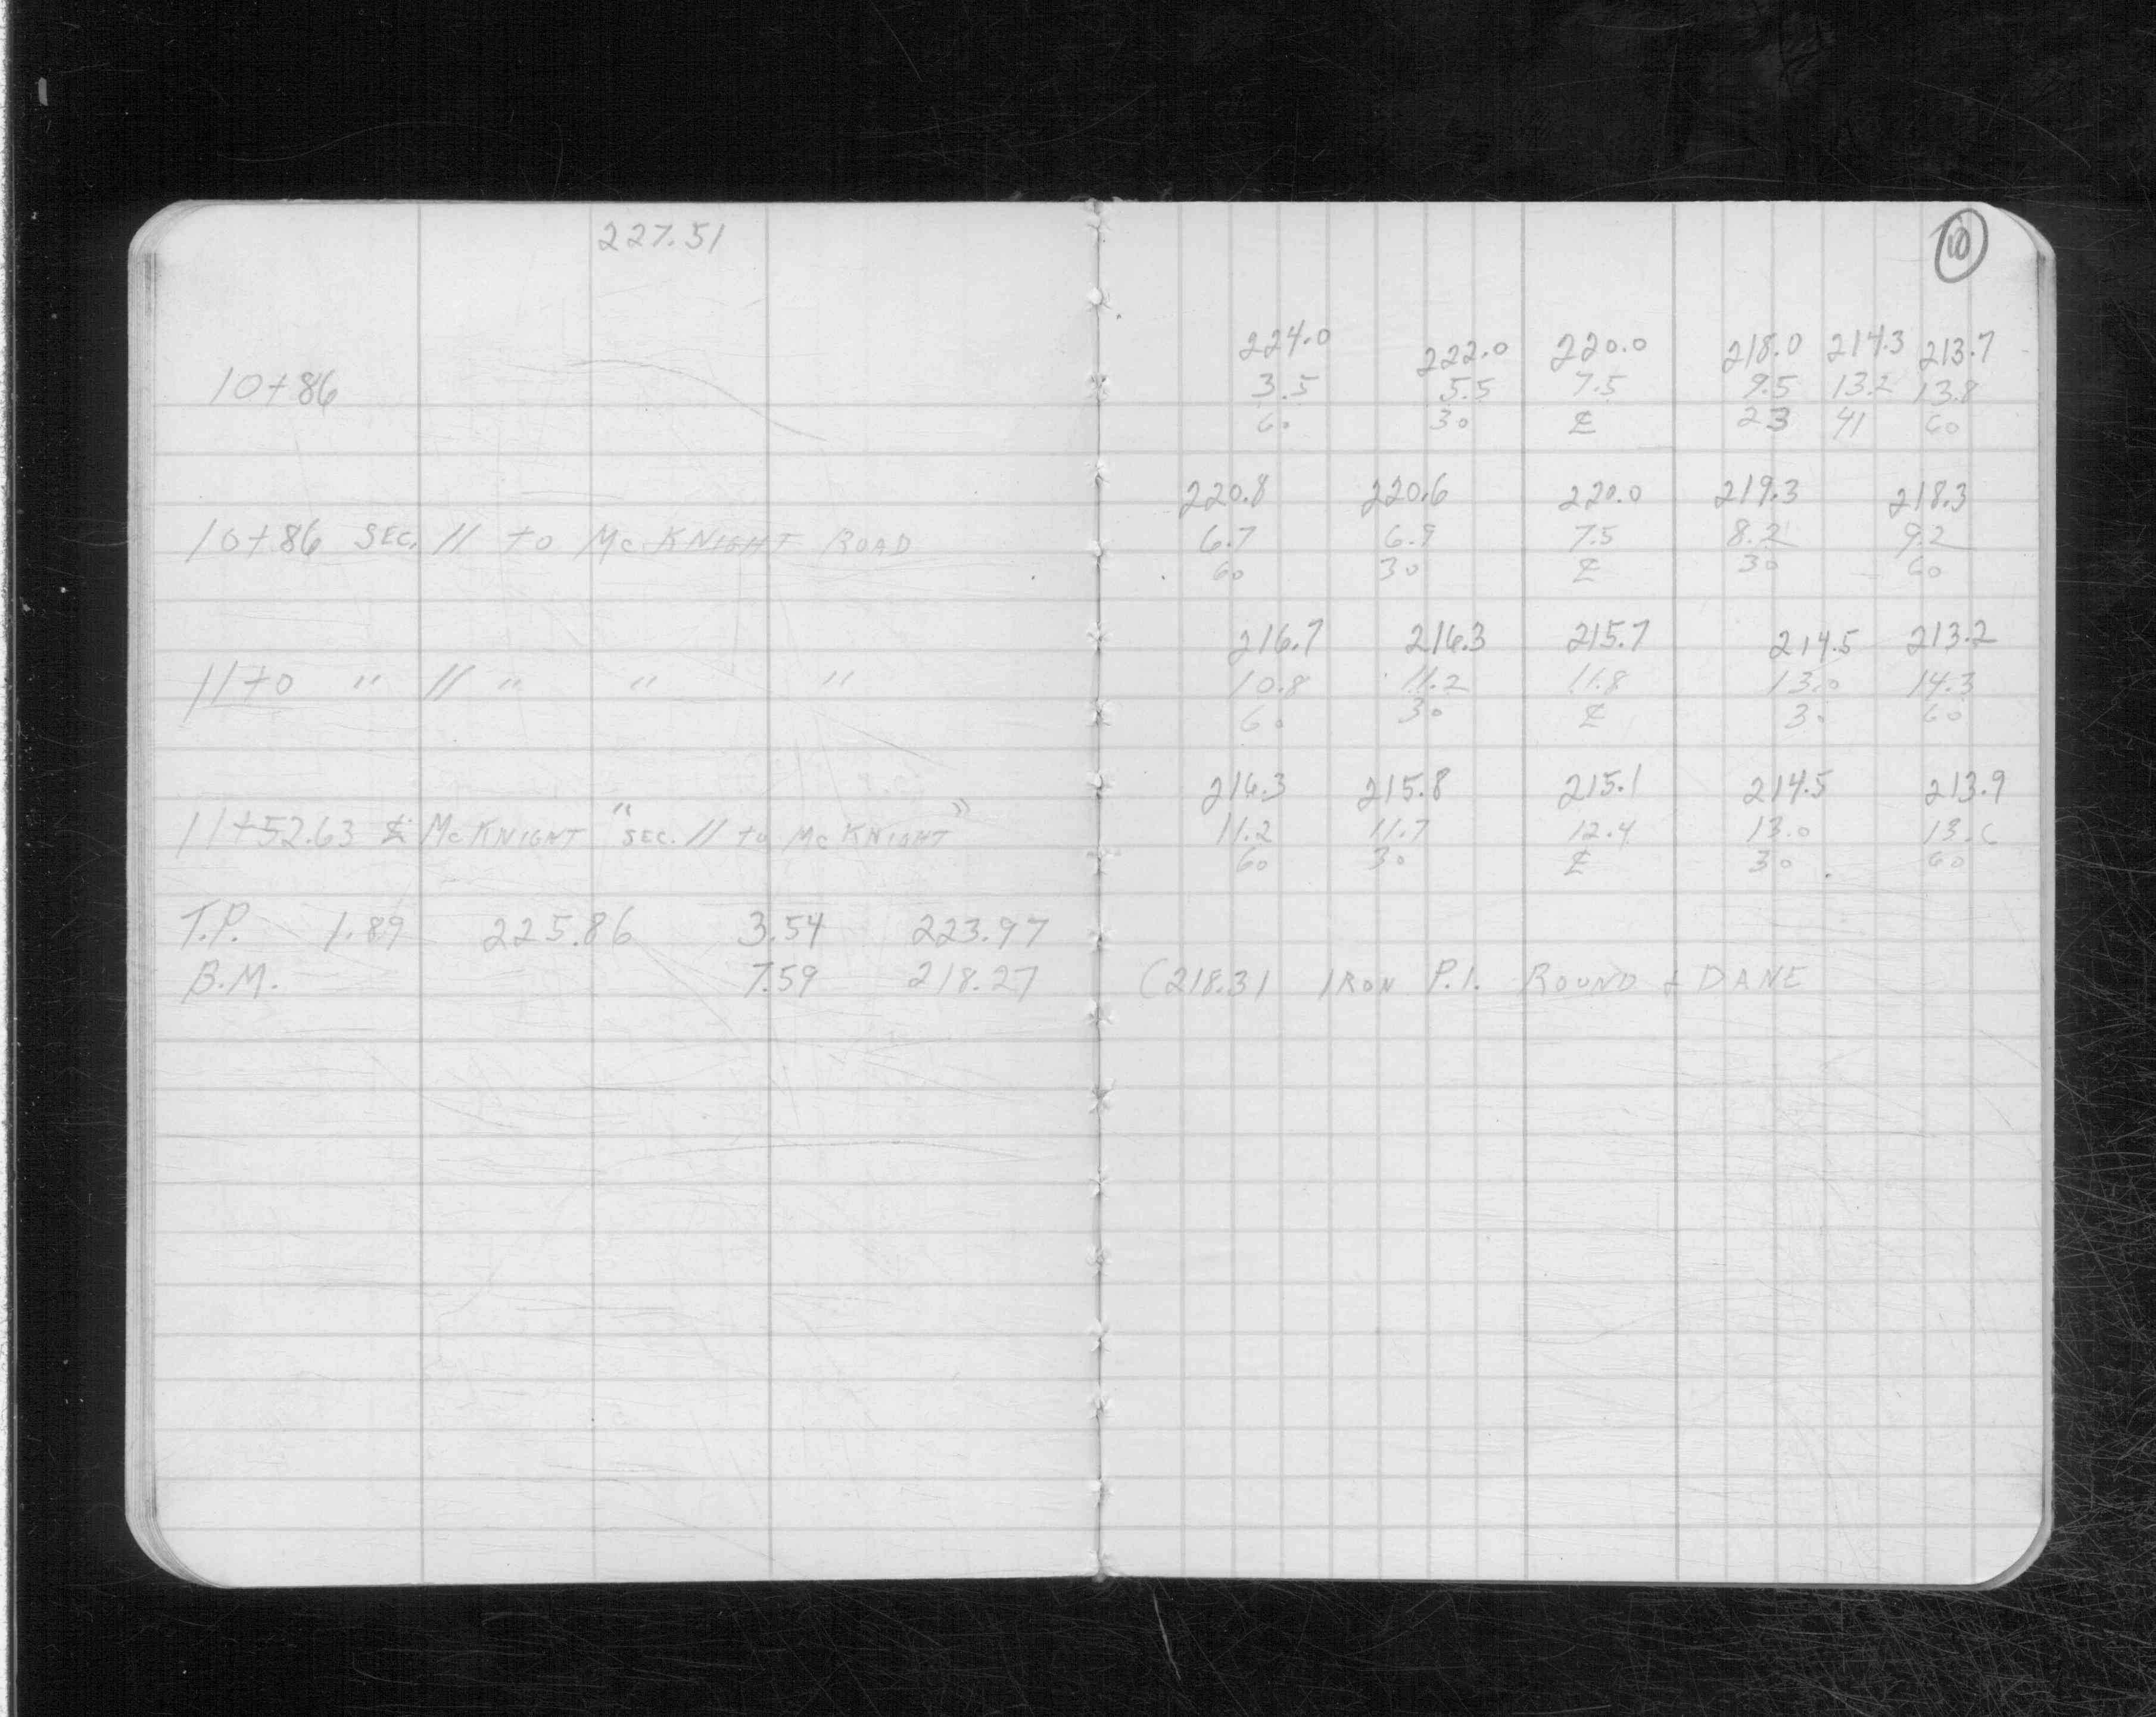 227.51
10
224.0 222.0 220.0 218.0 214.3 213.7
10+86 3.5 5.5 7.5 9.5 13.2 13.8
60 30 ℄ 23 41 60
220.8 220.6 220.0 219.3 218.3
10+86 SEC. // to McKNIGHT ROAD 6.7 6.9 7.5 8.2 9.2
60 30 ℄ 30 60
216.7 216.3 215.7 214.5 213.2
11+0 " // " " " 10.8 11.2 11.8 13.0 14.3
60 30 ℄ 30 60
216.3 215.8 215.1 214.5 213.9
11+52.63 ℄ McKNIGHT "SEC. // to McKNIGHT" 11.2 11.7 12.4 13.0 13.6
60 30 ℄ 30 60
T.P. 1.89 225.86 3.54 223.97
B.M. 7.59 218.27 (218.31 IRON P.I. ROUND & DANE